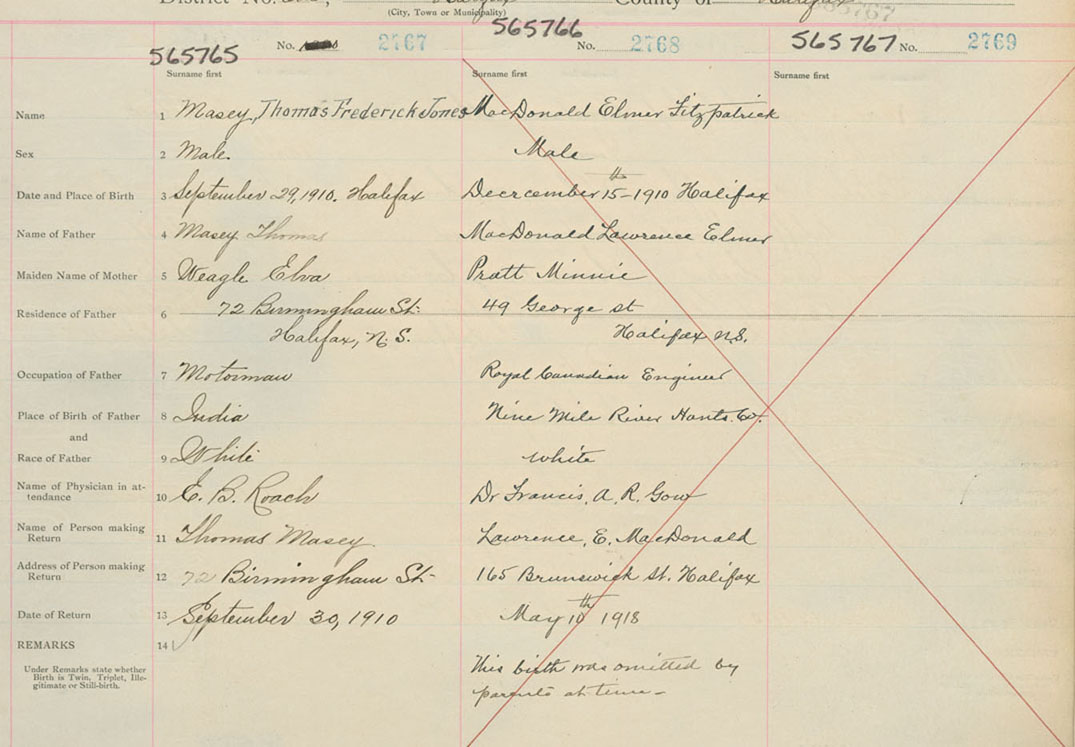 District No.
County of
(City, Town or Municipality)
565765 No. 2767 565766 No. 2768 565767 No. 2769
Surname first Surname first Surname first
Name 1 Masey, Thomas Frederick Jones MacDonald Elmer Fitzpatrick
Sex 2 Male. Male
th
Date and Place of Birth 3 September 29, 1910. Halifax Decrcember 15-1910 Halifax
Name of Father 4 Masey Thomas MacDonald Lawrence Elmer
Maiden Name of Mother 5 Weagle Elva Pratt Minnie
Residence of Father 6 72 Birmingham St. 49 George st
Halifax, N.S. Halifax N.S.
Occupation of Father 7 Motorman Royal Canadian Engineer
Place of Birth of Father 8 India Nine Mile River Hants. Co.
and
Race of Father 9 White White
Name of Physician in at-
tendance 10 E. B. Roach Dr Francis. A. R. Gow
Name of Person making
Return 11 Thomas Masey. Lawrence, E. MacDonald
Address of Person making
Return 12 72 Birmingham St- 165 Brunswick St. Halifax
th
Date of Return 13 September 30, 1910 May 10 1918
REMARKS 14
Under Remarks state whether
Birth is Twin, Triplet, Ille-
gitimate or Still-birth.
This birth was omitted by
parents at time-